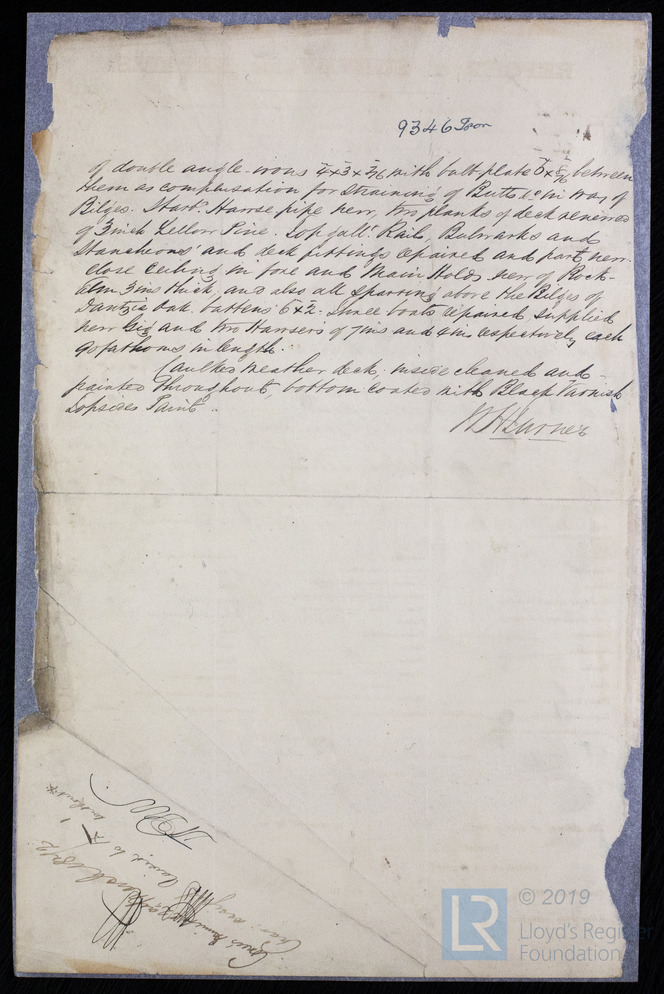 9346 Iron
of double angle irons 4 x 3 x 7/16 with bulb plate 6 x 8/16 between
them as compensation for straining of Butts &c in way of
Bilges. Starbd. Hawse pipe new, two planks of deck renewed
of 3 inch Yellow Pine. Topgallt. Rail, Bulwarks and
Stancheons and deck fittings repaired and part new.
close ceiling in fore and Main Holds new of Rock-
elm 3 ins thick. and also all sparring above the Bilges of
Dantzig oak battens 6 x 2. Since boats repaired supplied
new Gig and two Hawsers of 7 ins and 4 ins respectively each
90 fathoms in length.
Caulked weather deck. inside cleaned and
painted throughout, bottom coated with Black Varnish
topsides Paint.
W H Turner
© 2019
LR
Lloyd's Register
Foundation